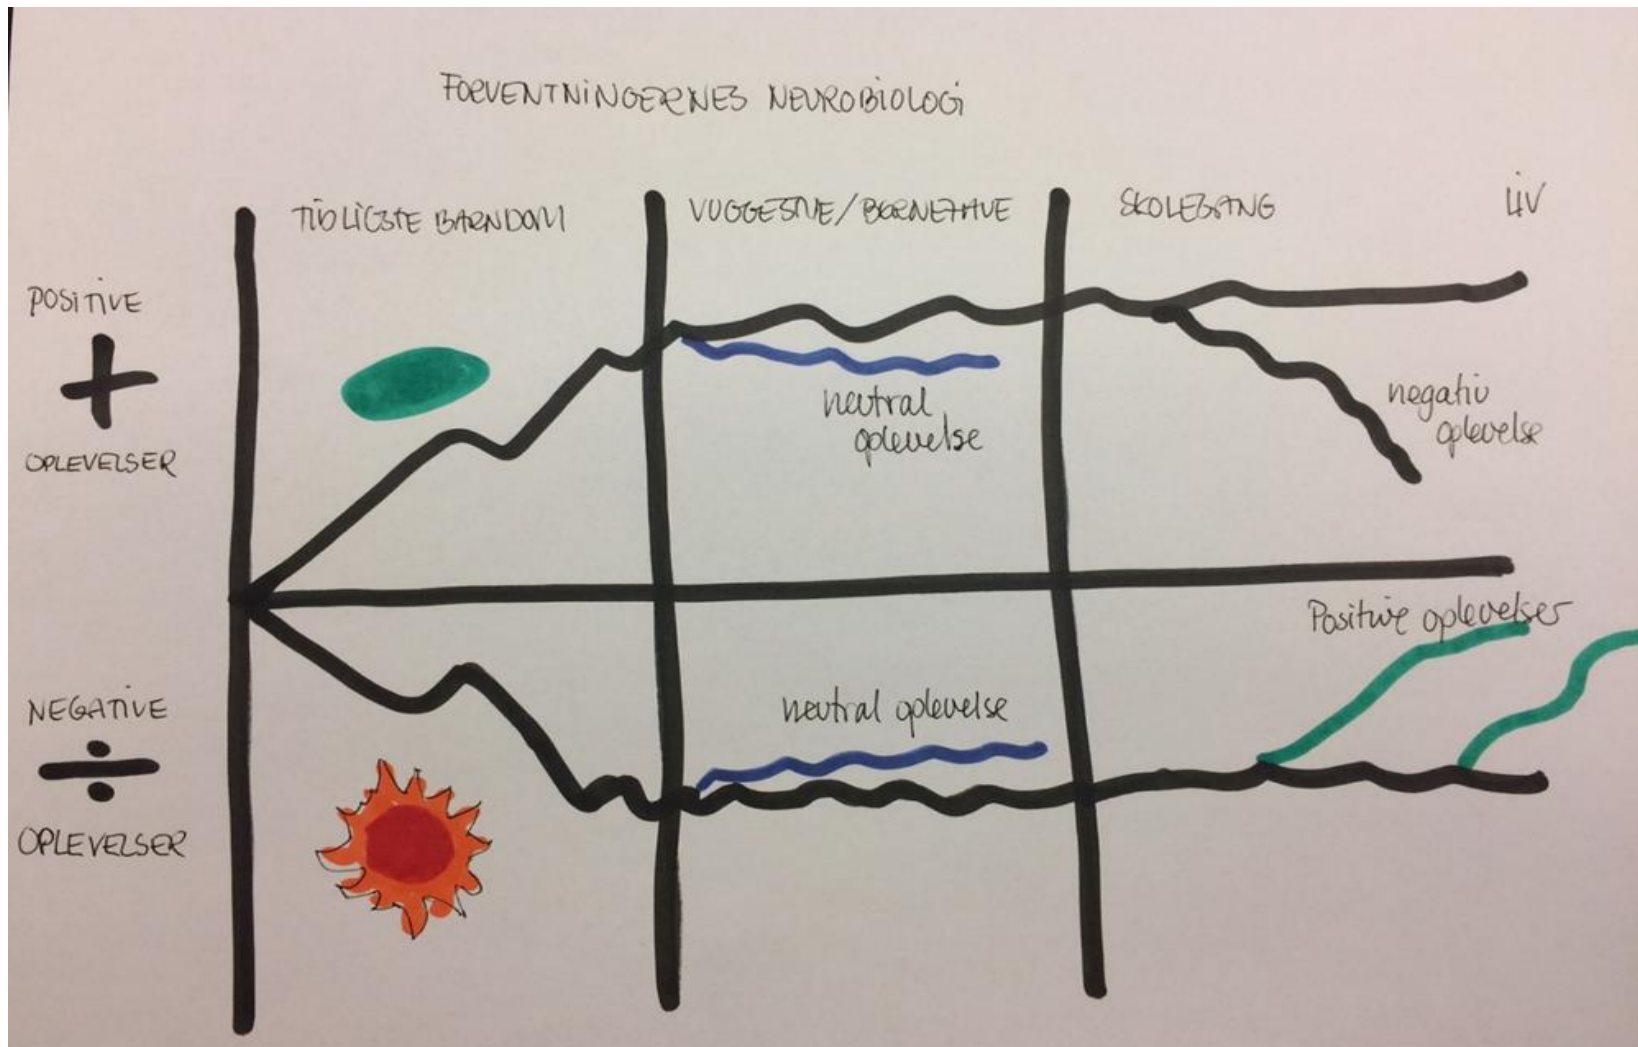 FORVENTNINGERNES NEUROBIOLOGI
TIDLIGSTE BARNDOM
VUGGESTUE/BØRNEHAVE
SKOLEGANG
LIV
POSITIVE
+
OPLEVELSER
neutral
oplevelse
negativ
oplevelse
Positive oplevelser
NEGATIVE
÷
OPLEVELSER
neutral oplevelse